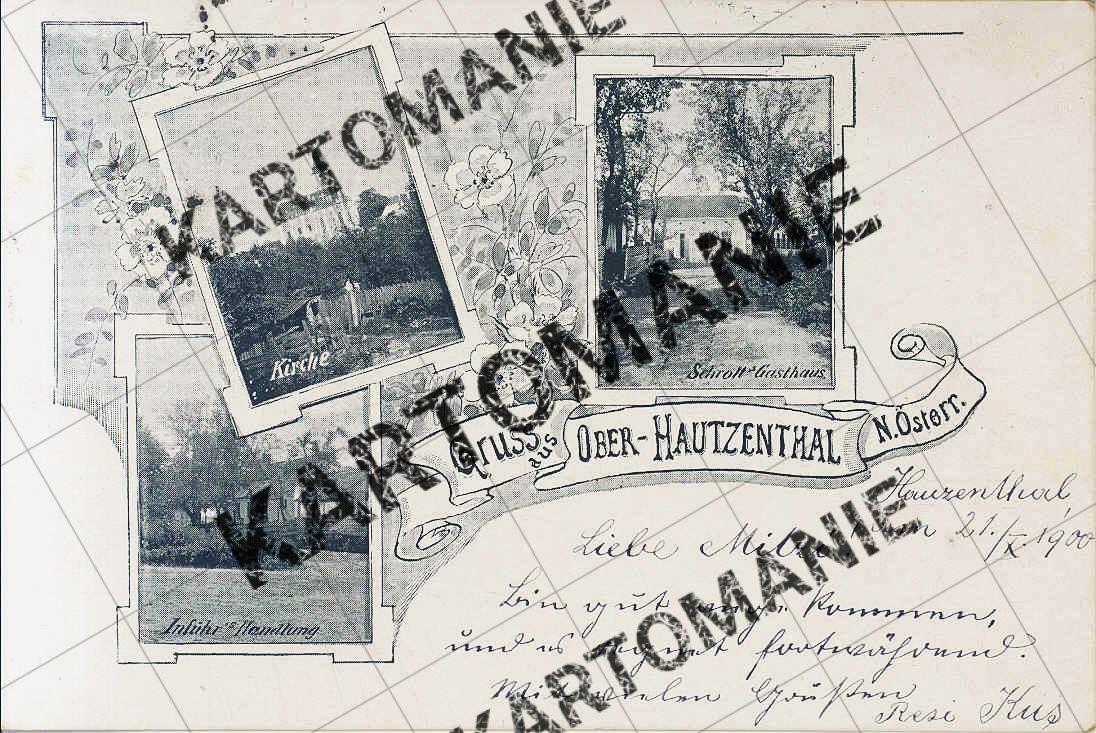 KARTOMANIE
Kirche
Schroll's Gasthaus
Gruss aus OBER-HAUTZENTHAL N.Österr.
KARTOMANIE
Hauzenthal,
den 21./X. 1900
Liebe
Bin gut kommen,
und es regnet fortwährend.
Handlung
Mit vielen Grüßen
Resi Kus
KARTOMANIE